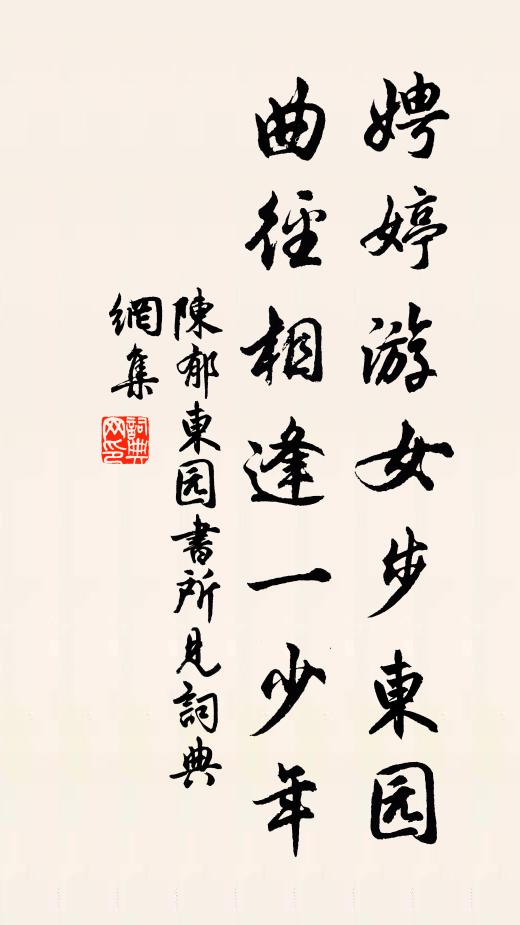 娉婷游女步東园
曲徑相逢一少年
陳郁東园書所見詞典
網集
詞典网印